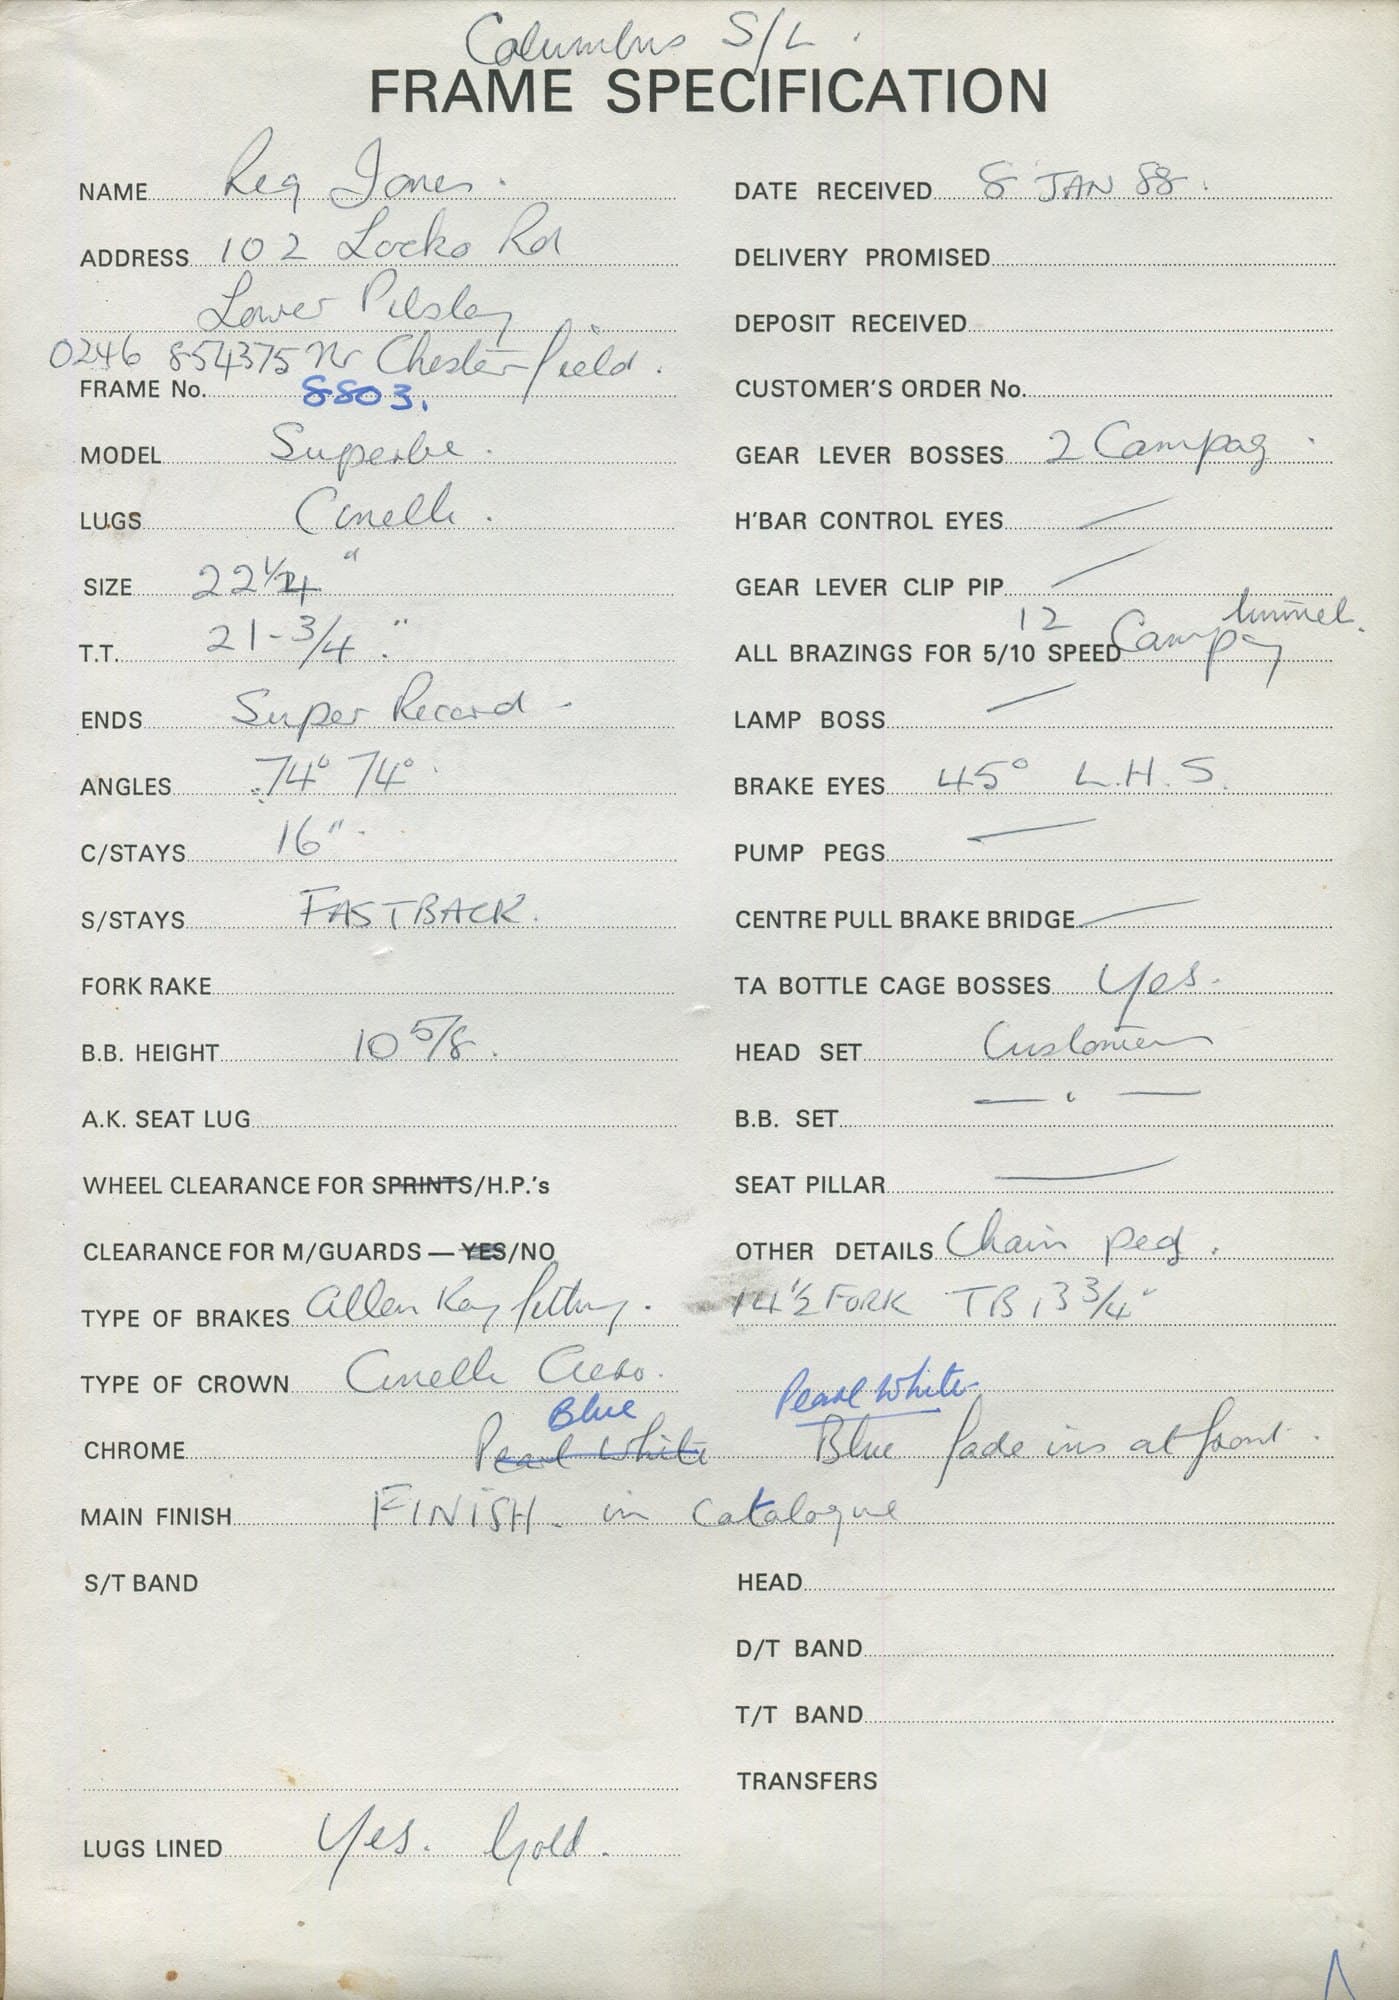 Columbus S/L.
FRAME SPECIFICATION
NAME Reg Jones.
ADDRESS 102 Locko Rd
Lower Pilsley
0246 854375 Nr Chesterfield.
FRAME No. 8803.
MODEL Superbe.
LUGS Cinelli.
SIZE 22 1/4"
T.T. 21-3/4".
ENDS Super Record
ANGLES 74° 74°
C/STAYS 16"
S/STAYS FASTBACK.
FORK RAKE
B.B. HEIGHT 10 5/8.
A.K. SEAT LUG
WHEEL CLEARANCE FOR SPRINTS/H.P.'s
CLEARANCE FOR M/GUARDS — YES/NO
TYPE OF BRAKES Allen Key fitting.
TYPE OF CROWN Cinelli Aero.
DATE RECEIVED 8 JAN 88.
DELIVERY PROMISED
DEPOSIT RECEIVED
CUSTOMER'S ORDER No.
GEAR LEVER BOSSES 2 Campag
H'BAR CONTROL EYES —
GEAR LEVER CLIP PIP —
12 tunnel.
ALL BRAZINGS FOR 5/10 SPEED Campag
LAMP BOSS —
BRAKE EYES 45° L.H.S.
PUMP PEGS —
CENTRE PULL BRAKE BRIDGE —
TA BOTTLE CAGE BOSSES Yes.
HEAD SET Customer
B.B. SET — " —
SEAT PILLAR —
OTHER DETAILS Chain peg.
14 1/2 FORK TB, 3 3/4"
Blue Pearl White
CHROME Pearl White Blue fade ins at front.
MAIN FINISH FINISH. in catalogue
S/T BAND
HEAD
D/T BAND
T/T BAND
TRANSFERS
LUGS LINED Yes. Gold.